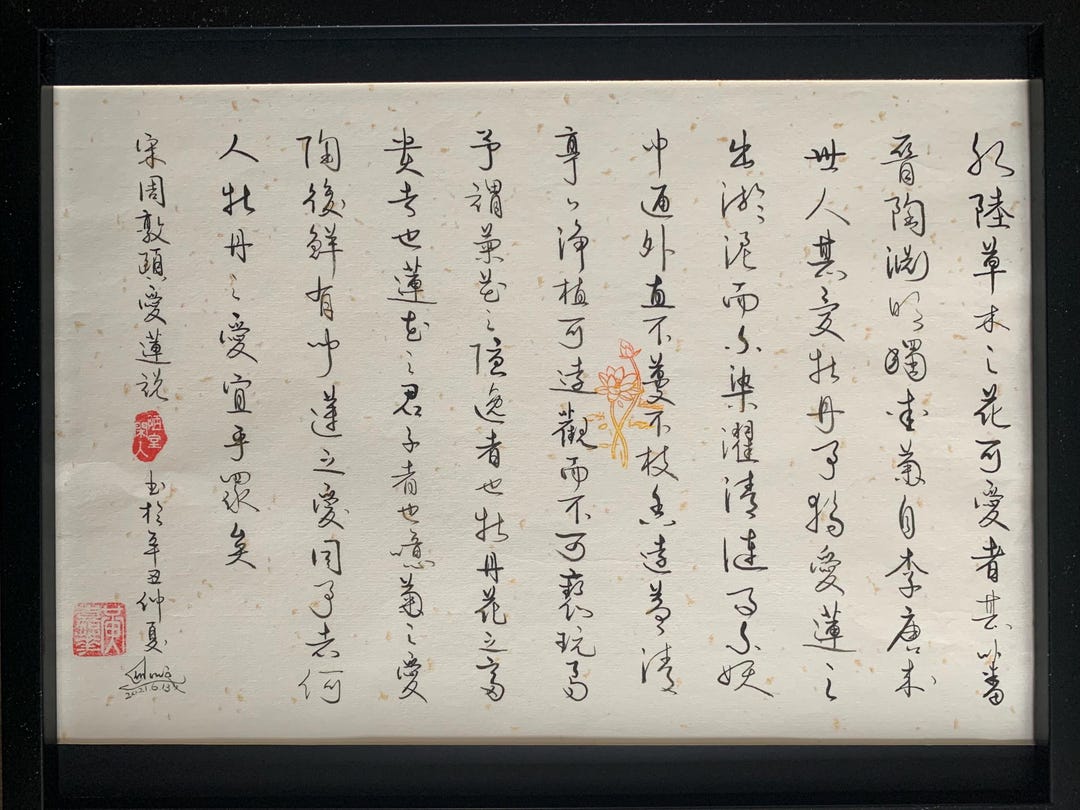 水陸草木之花可愛者甚蕃
晉陶淵明獨愛菊自李唐来
世人甚愛牡丹予獨愛蓮之
出淤泥而不染濯清漣而不妖
中通外直不蔓不枝香遠益清
亭亭淨植可遠觀而不可褻玩焉
予謂菊花之隱逸者也牡丹花之富
貴者也蓮花之君子者也噫菊之愛
陶後鮮有聞蓮之愛同予者何
人牡丹之愛宜乎眾矣
宋周敦頤愛蓮説
陋室
閑人
書於辛丑仲夏
2021.6.13